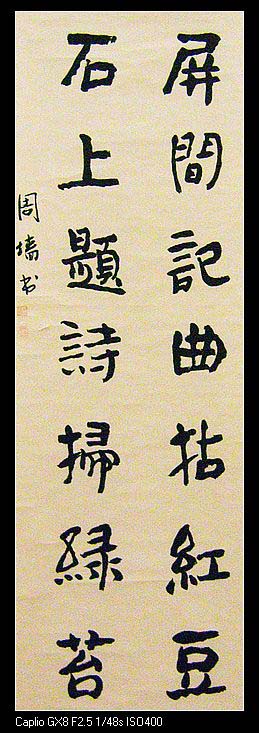 屏間記曲拈紅豆
石上題詩掃綠苔
周书
Caplio GX8 F2.5 1/48s ISO400